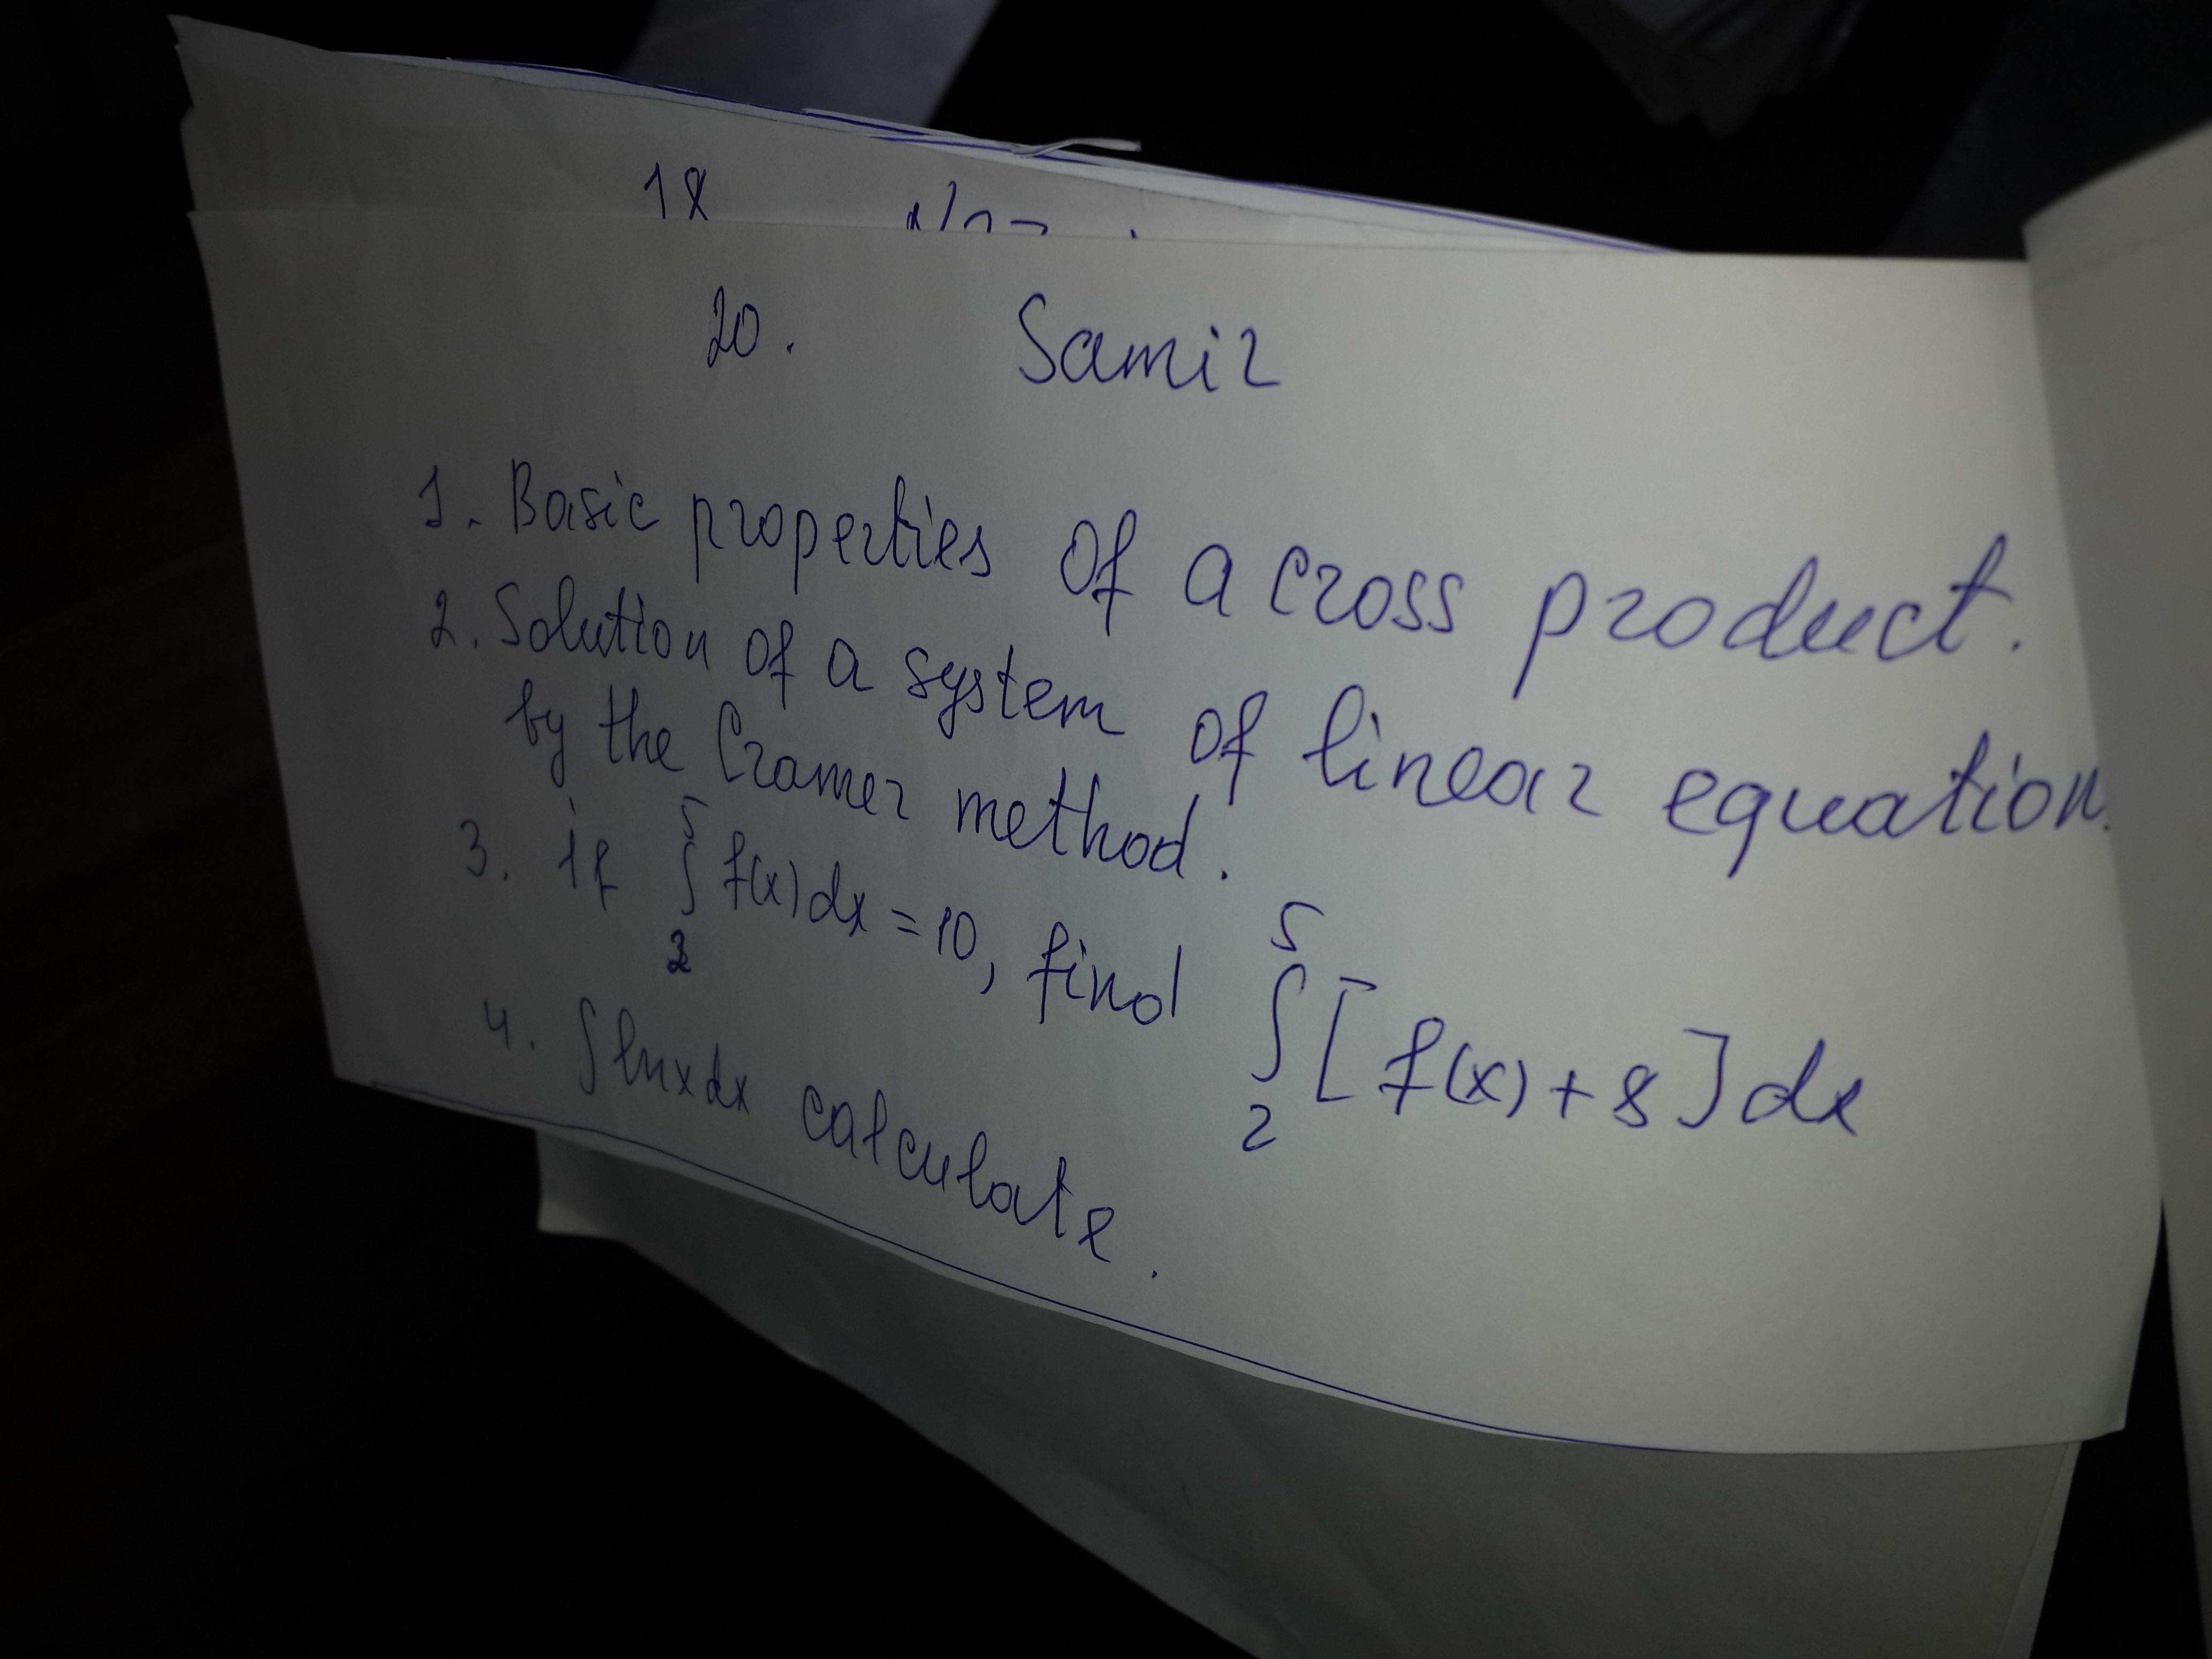 18
20. Samir
1. Basic properties of a cross product.
2. Solution of a system of linear equation.
by the Cramer method.
3. if ∫₂⁵ f(x)dx = 10, find ∫₂⁵ [f(x) + 8] dx
4. ∫lnxdx calculate.